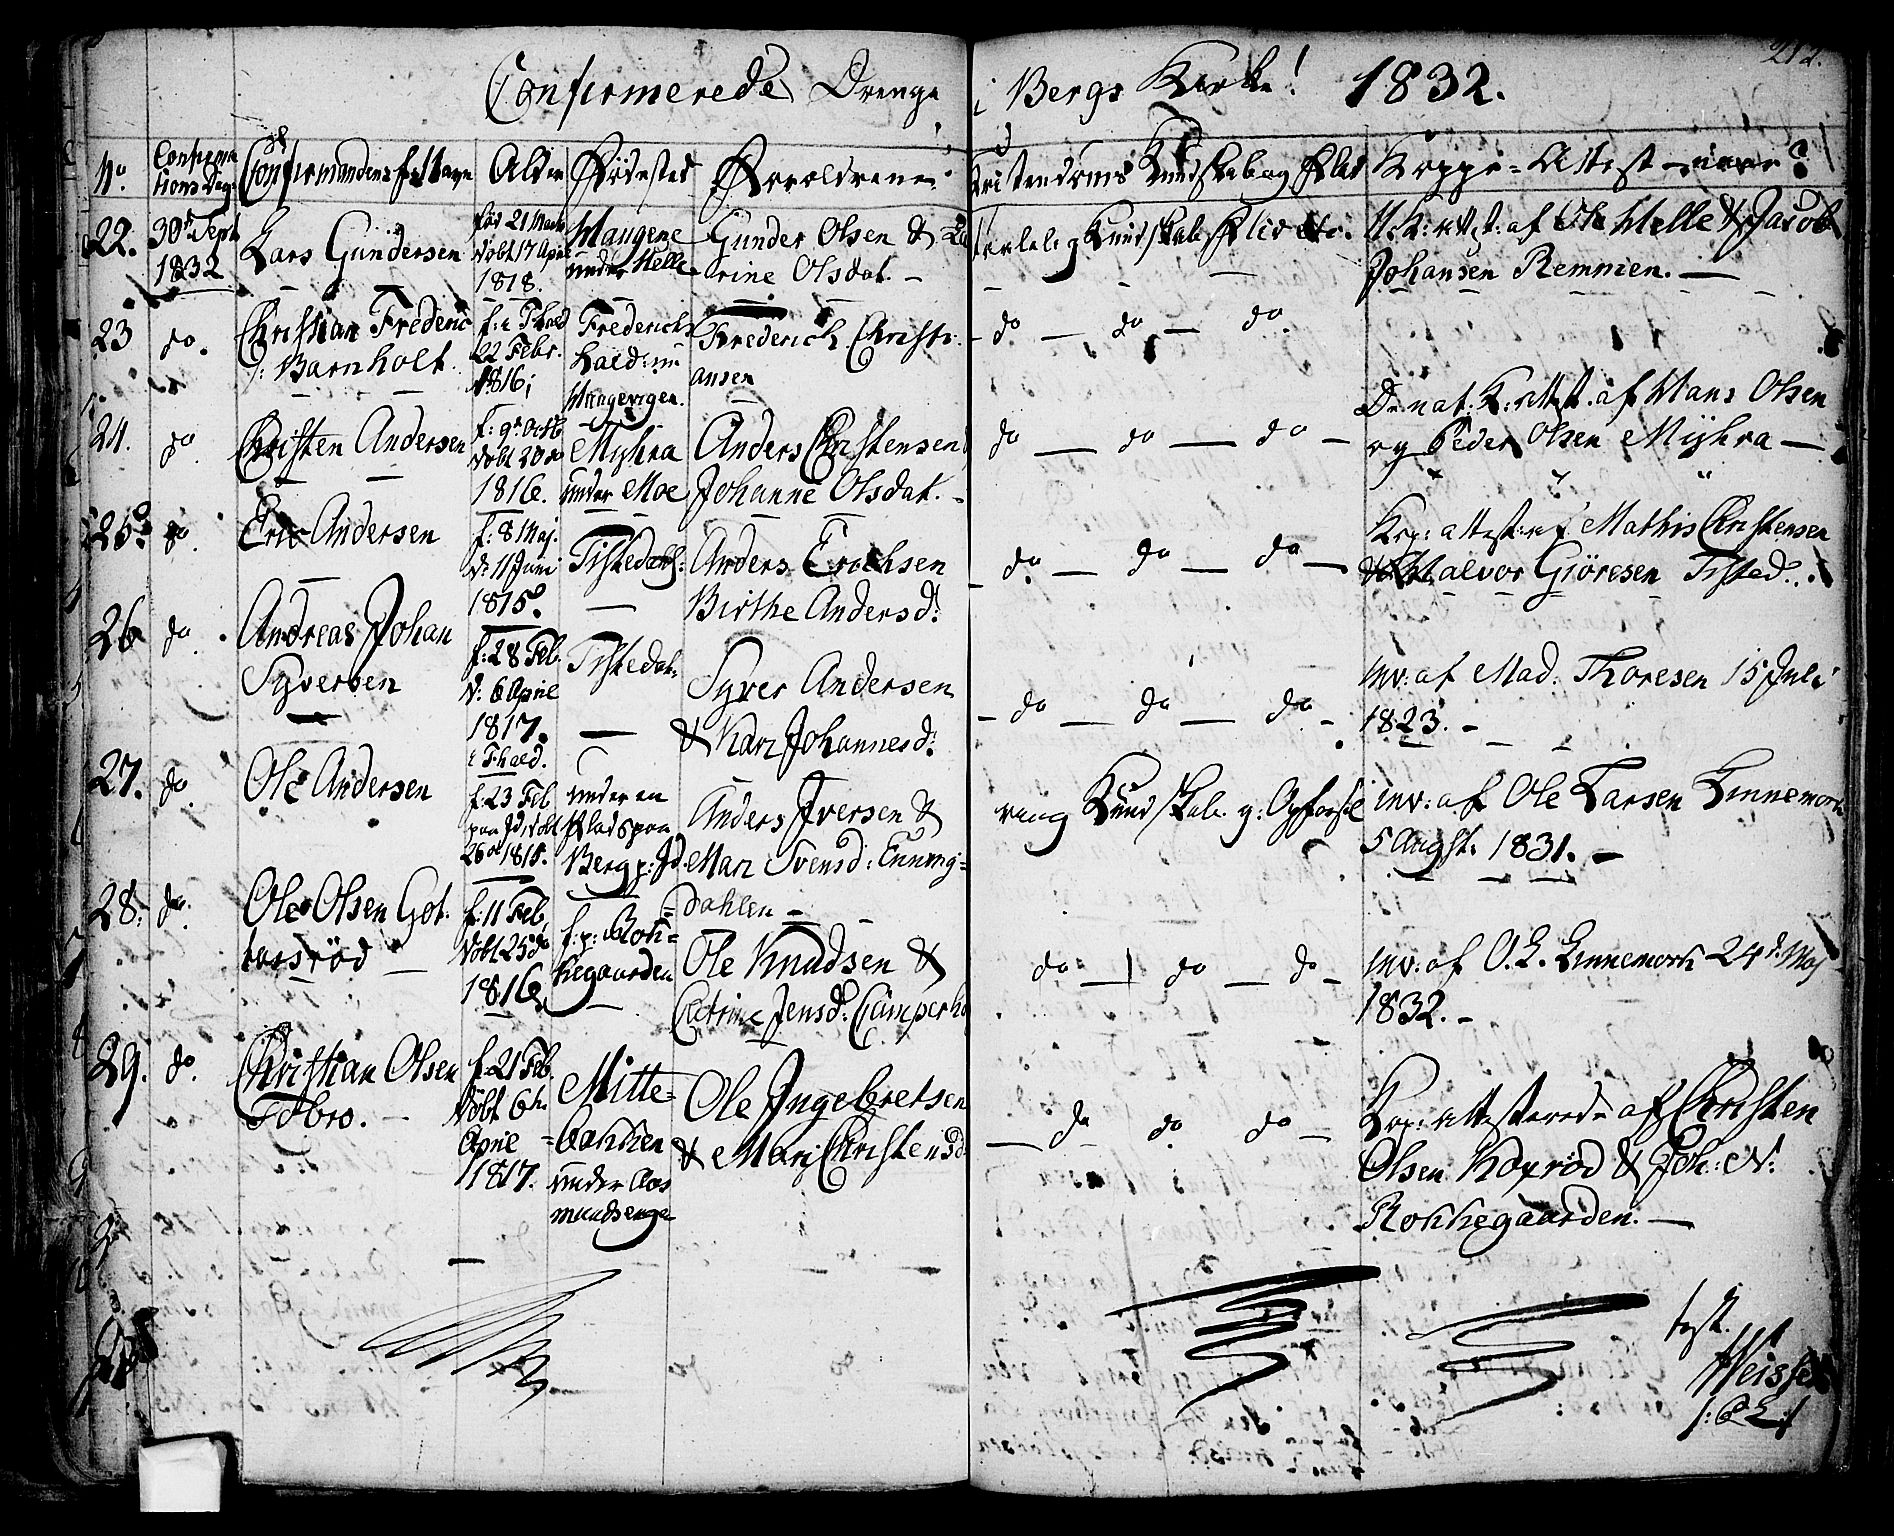 212.
Confirmerede Drenge i Bergs Kirke! 1832.
No. Confirmations Dag Confirmandens fulde Navn Alder Fødested Forældrene Christendoms Kundskab og Flid Koppe-Attest
22. 30d Sept 1832 Lars Gundersen
fød 21 Marts
døbt 17 April
1818.
Haugene
under Helle
Gunder Olsen &
rine Olsdat. –
Kundskab Flid
V: K: attest: af Ole Helle & Jacob
Johansen Remmen. –
23 do. Christian Frederic
Barnholt
f: i Fhald
22 Febr.
1816;
Frederichs
hald: nu
Frederich Christi
ansen
do – do – do.
24. do. Christen Andersen
f: 9d Octb
døbt 20 do
1816.
Myhra
under Moe
Anders Christensen
Johanne Olsdat. –
do – do – do –
K: attest. af Hans Olsen
og Peder Olsen Myhra –
25. do. Eric Andersen
f: 8 Maj.
d: 11 Juni
1815.
Tistedah:
Anders Erichsen
Birthe Andersd:
do – do – do –
Kop: attest: af Mathis Christensen
Halvor Giöresen Tisted.
26 do. Andreas Johan
Syversen
f: 28 Feb.
d: 6 April
1817.
i Fhald.
Tistedah.
Syver Andersen
& Kari Johannesd:
– do – do – do –
inv: af Mad: Thoresen 15 Juli
1823. –
27. do. Ole Andersen
f: 23 Feb
paa Id, døbt
26 do 1815.
under en
Plads paa
Berg p: Id.
Anders Iversen &
Mari Svensd:
dahlen –
ring Kundskab. g: Opførsel
inv: af Ole Larsen Linnemork
5 Augst. 1831. –
28. do. Ole Olsen Got
aasröd –
f: 11 Feb.
døbt 25 do
1816.
f: p: Rok=
kegaarden
Ole Knudsen &
Catrine Jensd:
do – do – do –
inv: af O. L. Linnemork 24d Maj
1832. –
29. do. Christian Olsen
f. 21 Feb.
døbt 6te
April
1817.
Mitte=
=bakken
under Aas
mundsenge
Ole Ingebretsen
& Mari Christensd
– do do do –
Kop: attesterede af Christen
Olsen & Joh: N:
Rokkegaarden. –
test.